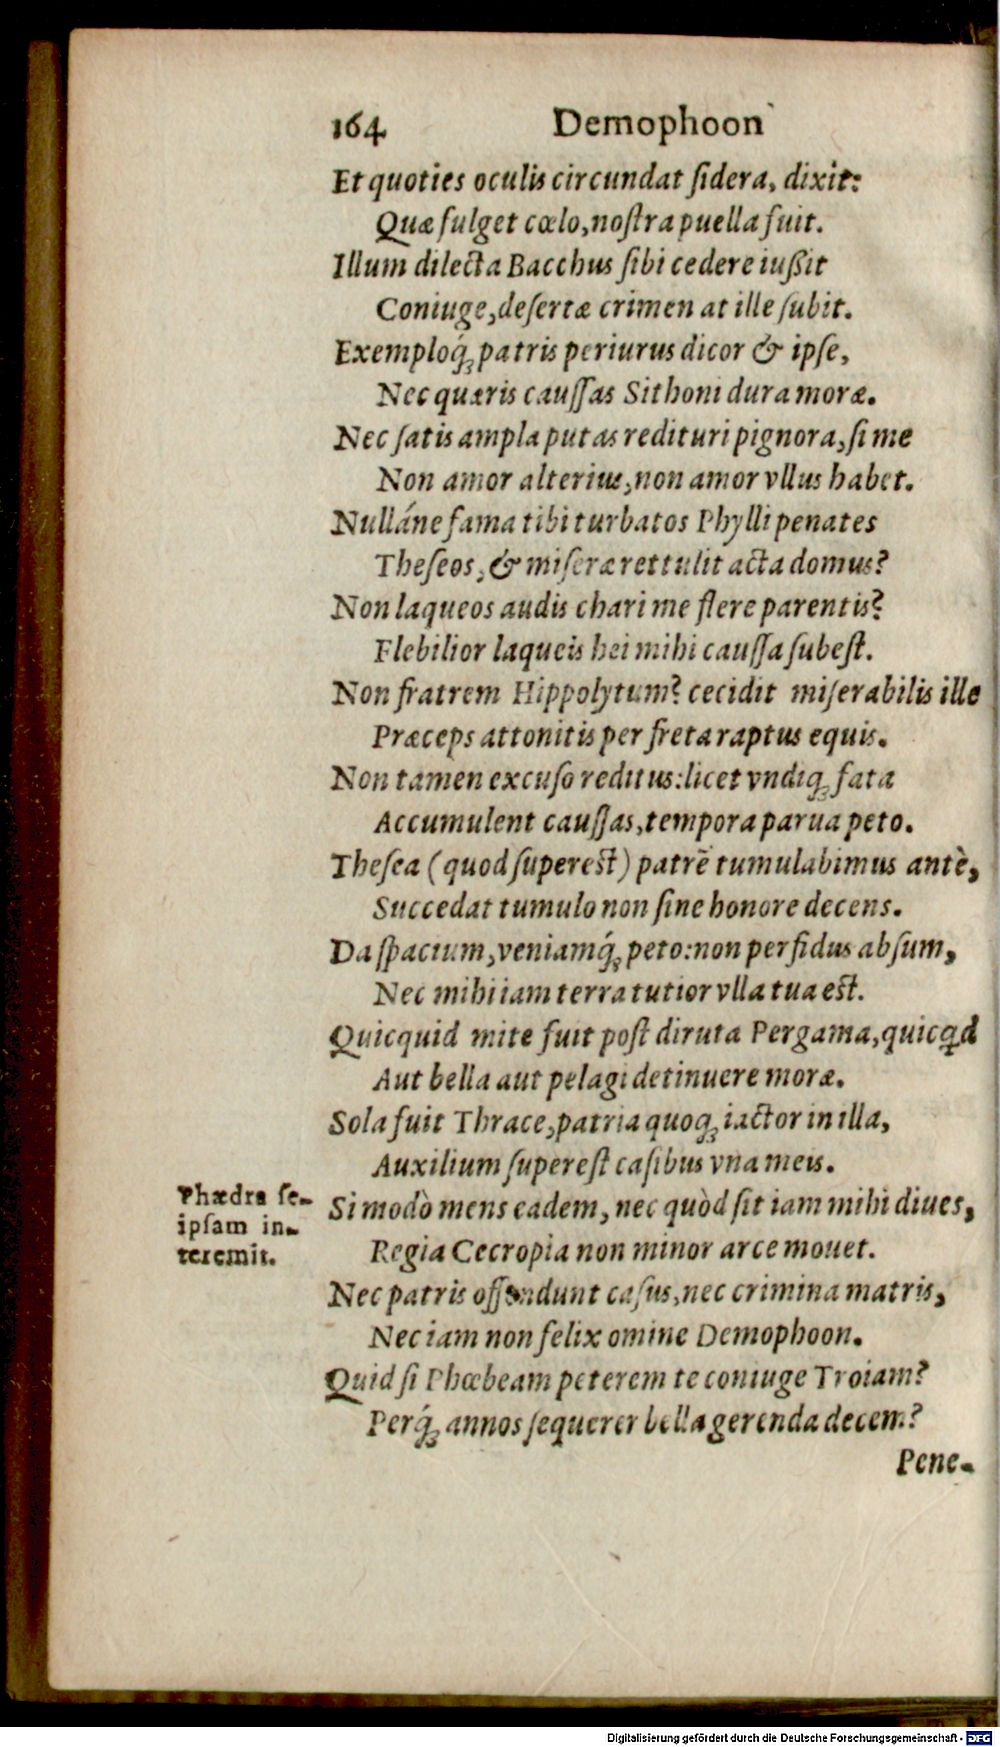 164 Demophoon
Et quoties oculis circundat ſidera, dixit:
Quæ fulget cœlo, noſtra puella fuit.
Illum dilecta Bacchus ſibi cedere iußit
Coniuge, deſertæ crimen at ille ſubit.
Exemploq́ꝫ patris periurus dicor & ipſe,
Nec quæris cauſſas Sithoni dura moræ.
Nec ſatis ampla putas redituri pignora, ſi me
Non amor alterius, non amor vllus habet.
Nulláne fama tibi turbatos Phylli penates
Theſeos, & miſeræ rettulit acta domus?
Non laqueos audis chari me flere parentis?
Flebilior laqueis hei mihi cauſſa ſubeſt.
Non fratrem Hippolytum? cecidit miſerabilis ille
Præceps attonitis per freta raptus equis.
Non tamen excuſo reditus: licet vndiqꝫ fata
Accumulent cauſſas, tempora parua peto.
Theſea (quod ſupereſt) patrē tumulabimus antè,
Succedat tumulo non ſine honore decens.
Da ſpacium, veniamq́ꝫ peto: non perfidus abſum,
Nec mihi iam terra tutior vlla tua eſt.
Quicquid mite fuit poſt diruta Pergama, quicꝗd
Aut bella aut pelagi detinuere moræ.
Sola fuit Thrace, patria quoqꝫ iactor in illa,
Auxilium ſupereſt caſibus vna meis.
Phædra ſe-
ipſam in-
teremit.
Si modò mens eadem, nec quòd ſit iam mihi diues,
Regia Cecropia non minor arce mouet.
Nec patris offendunt caſus, nec crimina matris,
Nec iam non felix omine Demophoon.
Quid ſi Phœbeam peterem te coniuge Troiam?
Perq́ꝫ annos ſequerer bella gerenda decem?
Pene-
Digitalisierung gefördert durch die Deutsche Forschungsgemeinschaft - DFG